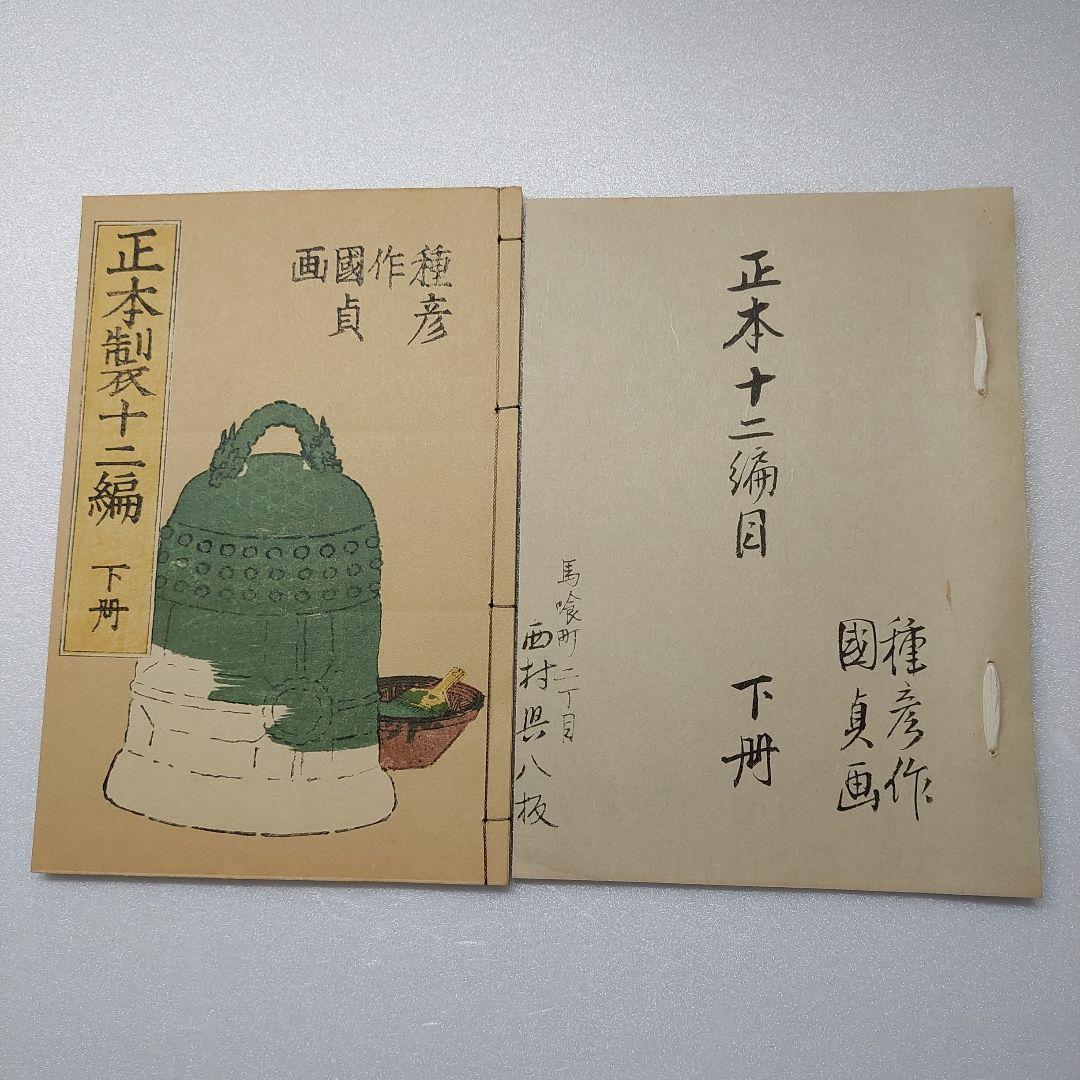 正本製十二編 下冊
種彦
作
國貞
画
正本十二編目 下冊
種彦作
國貞画
馬喰町二丁目
西村與八板